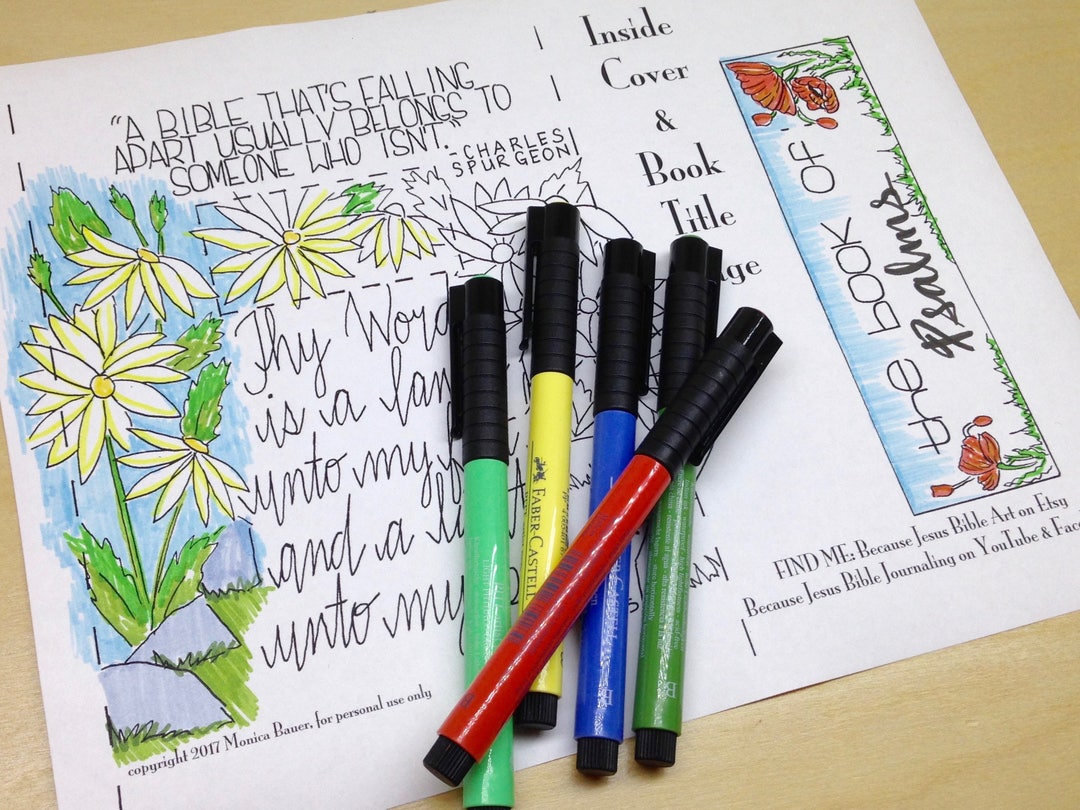 "A BIBLE THAT'S FALLING
APART USUALLY BELONGS TO
SOMEONE WHO ISN'T."
-CHARLES
SPURGEON
Thy Word
is a
unto my
and a
unto my
copyright 2017 Monica Bauer, for personal use only
Inside
Cover
&
Book
Title
the BOOK OF:
Psalms
FIND ME: Because Jesus Bible Art on Etsy
Because Jesus Bible Journaling on YouTube &
FABER-CASTELL